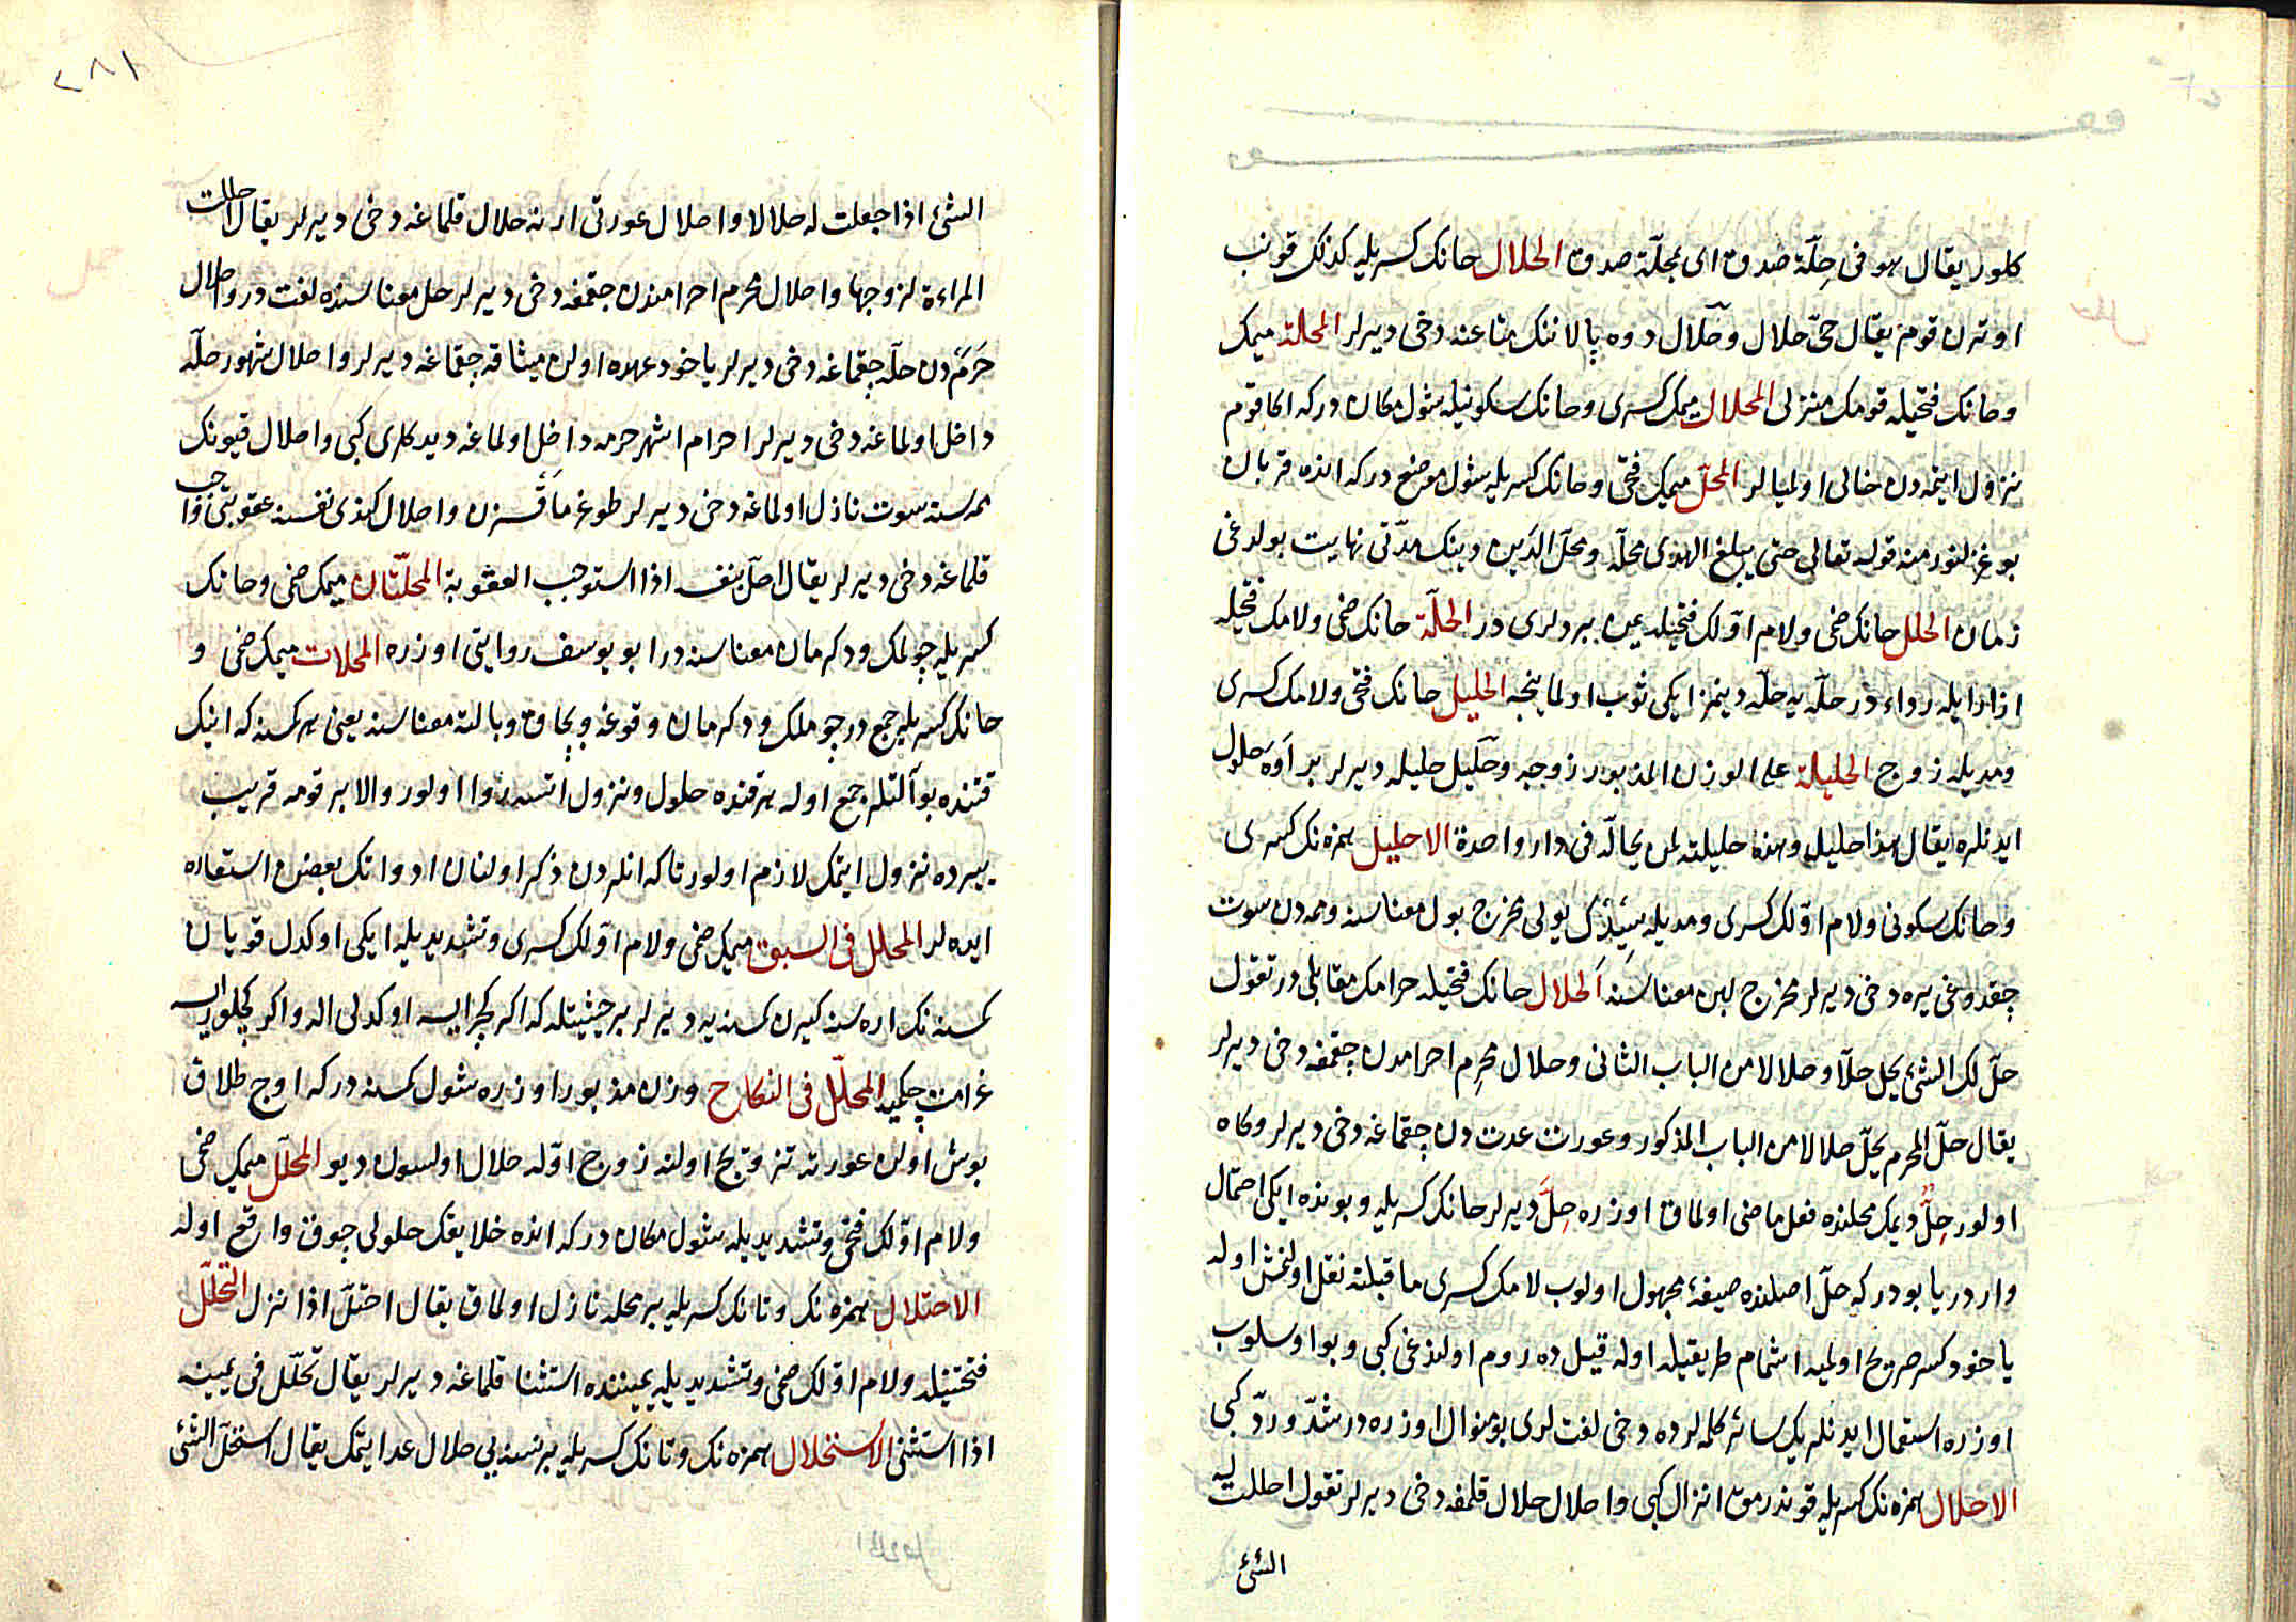 كلور يقال هو فى حِلّة صدق اى بمحلّة صدق الحلال حانك كسريله كذلك قونب
اوترن قوم يقال حىّ حلال وحلّال دوه پالاننك متاعنه دخى ديرلر المحلة ميمك
وحانك فتحيله قومك منزلى المحلال ميمك كسرى وحانك سكونيله شول مكان دركه اكا قوم
نزول ايتمه دن خالى اولميالر المحلّ ميمك فتحى وحانك كسريله شول موضع دركه انده قربان
بوغزلنور منه قوله تعالى حتى يبلغ الهدى محلّه ومحلّ الدّين دينك مدّتى نهايت بولدوغى
زمان الحلل حانك ضمى ولام اوّلك فتحيله يمن بردلرى در الحلّة حانك ضمى ولامك فتحيله
ازار ايله رداء در حلّه يه حلّه دينمز ايكى ثوب اولماينجه الحليل حانك فتحى ولامك كسرى
ومديله زوج الحليلة على الوزن المذبور زوجه وحليل حليله ديرلر بر اوه حلول
ايدنلره يقال هذا حليله وهذه حليلته لمن يحالّه فى دار واحدة الاحليل همزه نك كسرى
وحانك سكونى ولام اوّلك كسرى ومديله سيدك يولى مخرج بول معناسنه وممه دن سوت
چقدوغى يره دخى ديرلر مخرج لبن معناسنه الحلال حانك فتحيله حرامك مقابلى در تقول
حلّ لك الشئ يحل حلّا وحلالا من الباب الثانى وحلال محرم احرامدن چقمغه دخى ديرلر
يقال حلّ المحرم يحلّ حلالا من الباب المذكور وعورت عدت دن چقماغه دخى ديرلر وكاه
اولور حِلٌّ ديمك محلنده فعل ماضى اولماق اوزره حِلَّ ديرلر حانك كسريله وبونده ايكى احتمال
واردر يا بودر كه حلّ اصلنده صيغهٔ مجهول اولوب لامك كسرى ماقبلنه نقل اولنمش اوله
ياخود كسر صريح اولميه اشمام طريقيله اوله قيل ده روم اولندغى كبى وبو اوسلوب
اوزره استعمال ايدنلريك سائر كلمه لرده دخى لغت لرى بو منوال اوزره در شدّ وردّ كبى
الاحلال همزه نك كسريله قوندرمق انزال كبى واحلال حلال قلمغه دخى ديرلر تقول احللت له
الشئ
٢٨١
الشئ اذا جعلت له حلالا واحلال عورتى ارنه حلال قلماغه دخى ديرلر يقال احللت
المراءة لزوجها واحلال محرم احرامندن چقمغه دخى ديرلر حل معناسنده لغت در واحلال
حَرَمدن حلّه چقماغه دخى ديرلر ياخود عهده اولن ميثاقه چقماغه ديرلر واحلال شهور حلّه
داخل اولماغه دخى ديرلر احرام اشهر حرمه داخل اولماغه ديدكلرى كبى واحلال قيونك
ممه سنه سوت نازل اولماغه دخى ديرلر طوغرمقسزن واحلال كندى نفسنه عقوبتى واجب
قلماغه دخى ديرلر يقال احلّ بنفسه اذا استوجب العقوبة المحلّتان ميمك ضمى وحانك
كسريله چولمك ودكرمان معناسنه در ابو يوسف روايتى اوزره المحلات ميمك ضمى و
حانك كسريله جمع در چوملك ودكرمان وقوغه وپچاق وبالته معناسنه يعنى هر كمسنه كه انيك
قتنده بو آلتلر جمع اوله هر قنده حلول ونزول اتسه روا اولور والا بر قومه قريب
يرده نزول ايتمك لازم اولور تا كه انلردن ذكر اولنان ادواتك بعضن استعاره
ايده لر المحلل فى السبق ميمك ضمى ولام اوّلك كسرى وتشديديله ايكى اوكدل قويان
كمسنه نك اره سنه كيرن كمسنه يه ديرلر بر حيثيتله كه اكر كچر ايسه اوكدلى اله واكر كچلور ايسه
غرامت چكميه المحلّل فى النكاح وزن مذبور اوزره شول كمسنه دركه اوچ طلاق
بوش اولن عورته تزوّج اولنه زوج اوّله حلال اولسون ديو المحلّل ميمك ضمى
ولام اوّلك فتحى وتشديديله شول مكان دركه انده خلايقك حلولى چوق واقع اوله
الاحتلال همزه نك وتانك كسريله بر محله نازل اولماق يقال احتلّ اذا نزل التحلّل
فتحتيله ولام اوّلك ضمى وتشديديله يميننده استثنا قلماغه ديرلر يقال تحلّل فى يمينه
اذا استثنى الاستحلال همزه نك وتانك كسريله بر نسنه يى حلال عد ايتمك يقال استحلّ الشئ